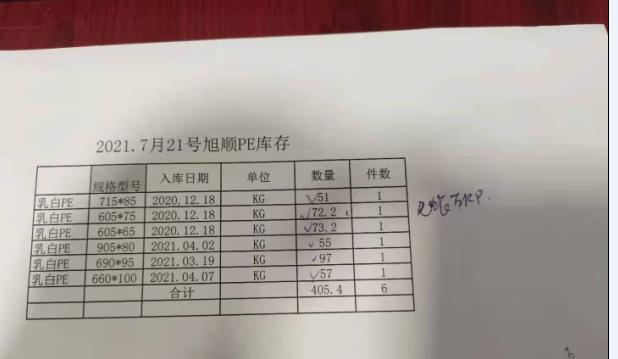 2021.7月21号旭顺PE库存
规格型号 入库日期 单位 数量 件数
乳白PE 715*85 2020.12.18 KG 51 1
乳白PE 605*75 2020.12.18 KG 72.2 1
乳白PE 605*65 2020.12.18 KG 73.2 1
乳白PE 905*80 2021.04.02 KG 55 1
乳白PE 690*95 2021.03.19 KG 97 1
乳白PE 660*100 2021.04.07 KG 57 1
合计 405.4 6